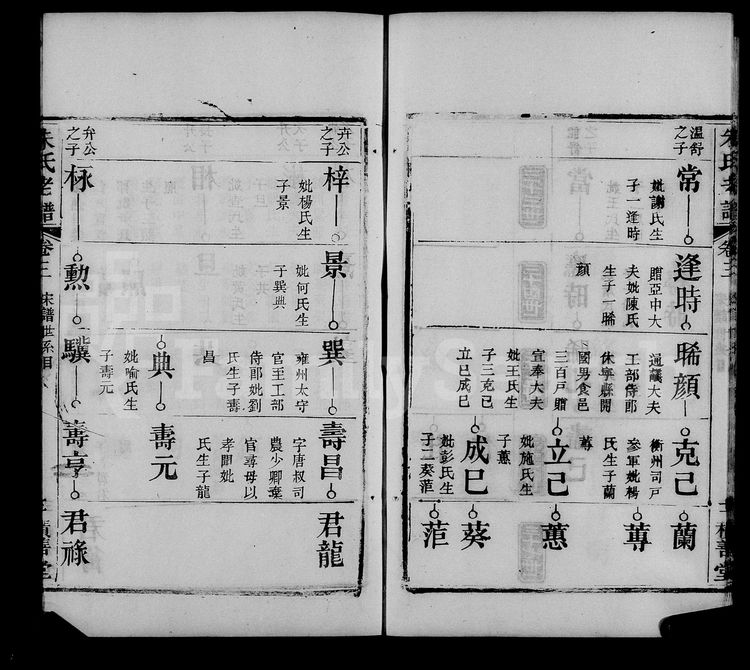 溫舒
之子
常
妣謝氏生
子一逢時
逢時
贈亞中大
夫妣陳氏
生子一晞
顔
晞顔
通議大夫
工部侍郎
休寧縣開
國男食邑
三百戸贈
宣奉大夫
妣王氏生
子三克己
立己成己
克己
衢州司戸
參軍妣楊
氏生子蘭
蓴
立己
妣施氏生
子蕙
成己
妣彭氏生
子二葵菹
蘭
蓴
蕙
葵
弁公
之子
梓
妣楊氏生
子景
景
妣何氏生
子巽典
巽
雍州太守
官至工部
侍郎妣劉
氏生子壽
昌
典
妣喻氏生
子壽元
壽昌
字唐叔司
農少卿棄
官尋母以
孝聞妣
氏生子龍
壽元
君龍
弁公
之子
勲
驥
壽亨
君祿
朱氏老譜
卷三
宋譜世系相
積善堂